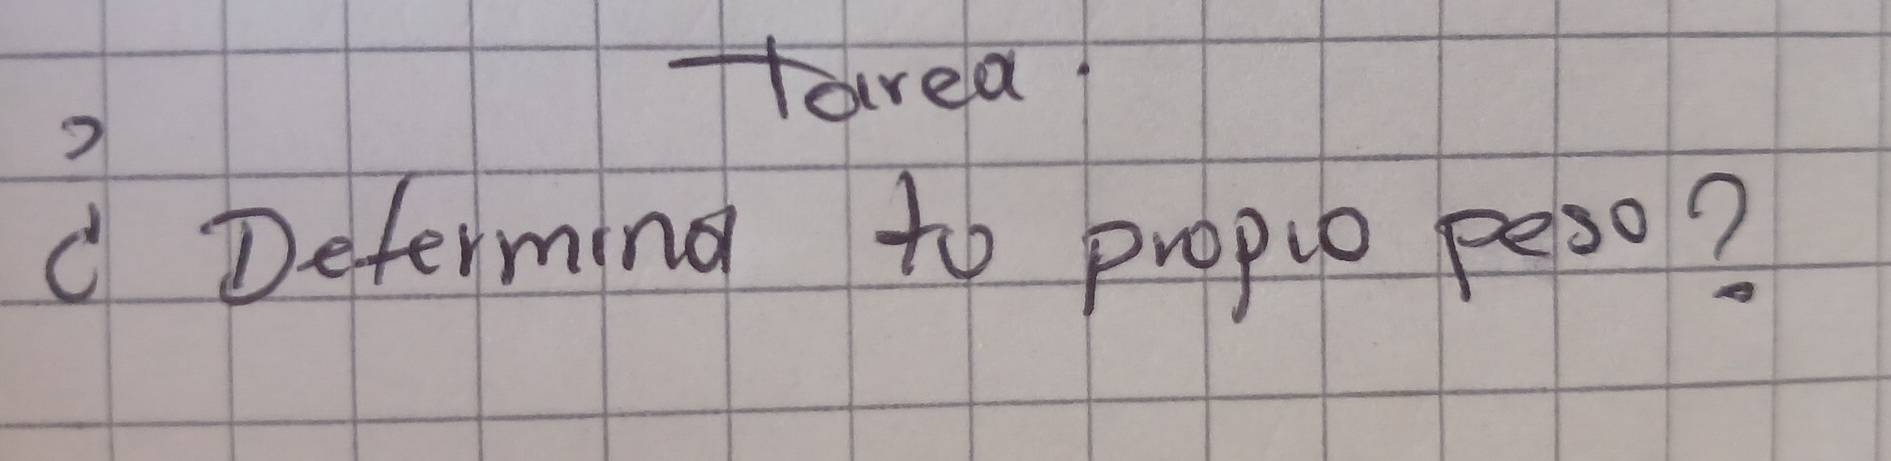 Tarea.
¿ Determina tu propio peso?